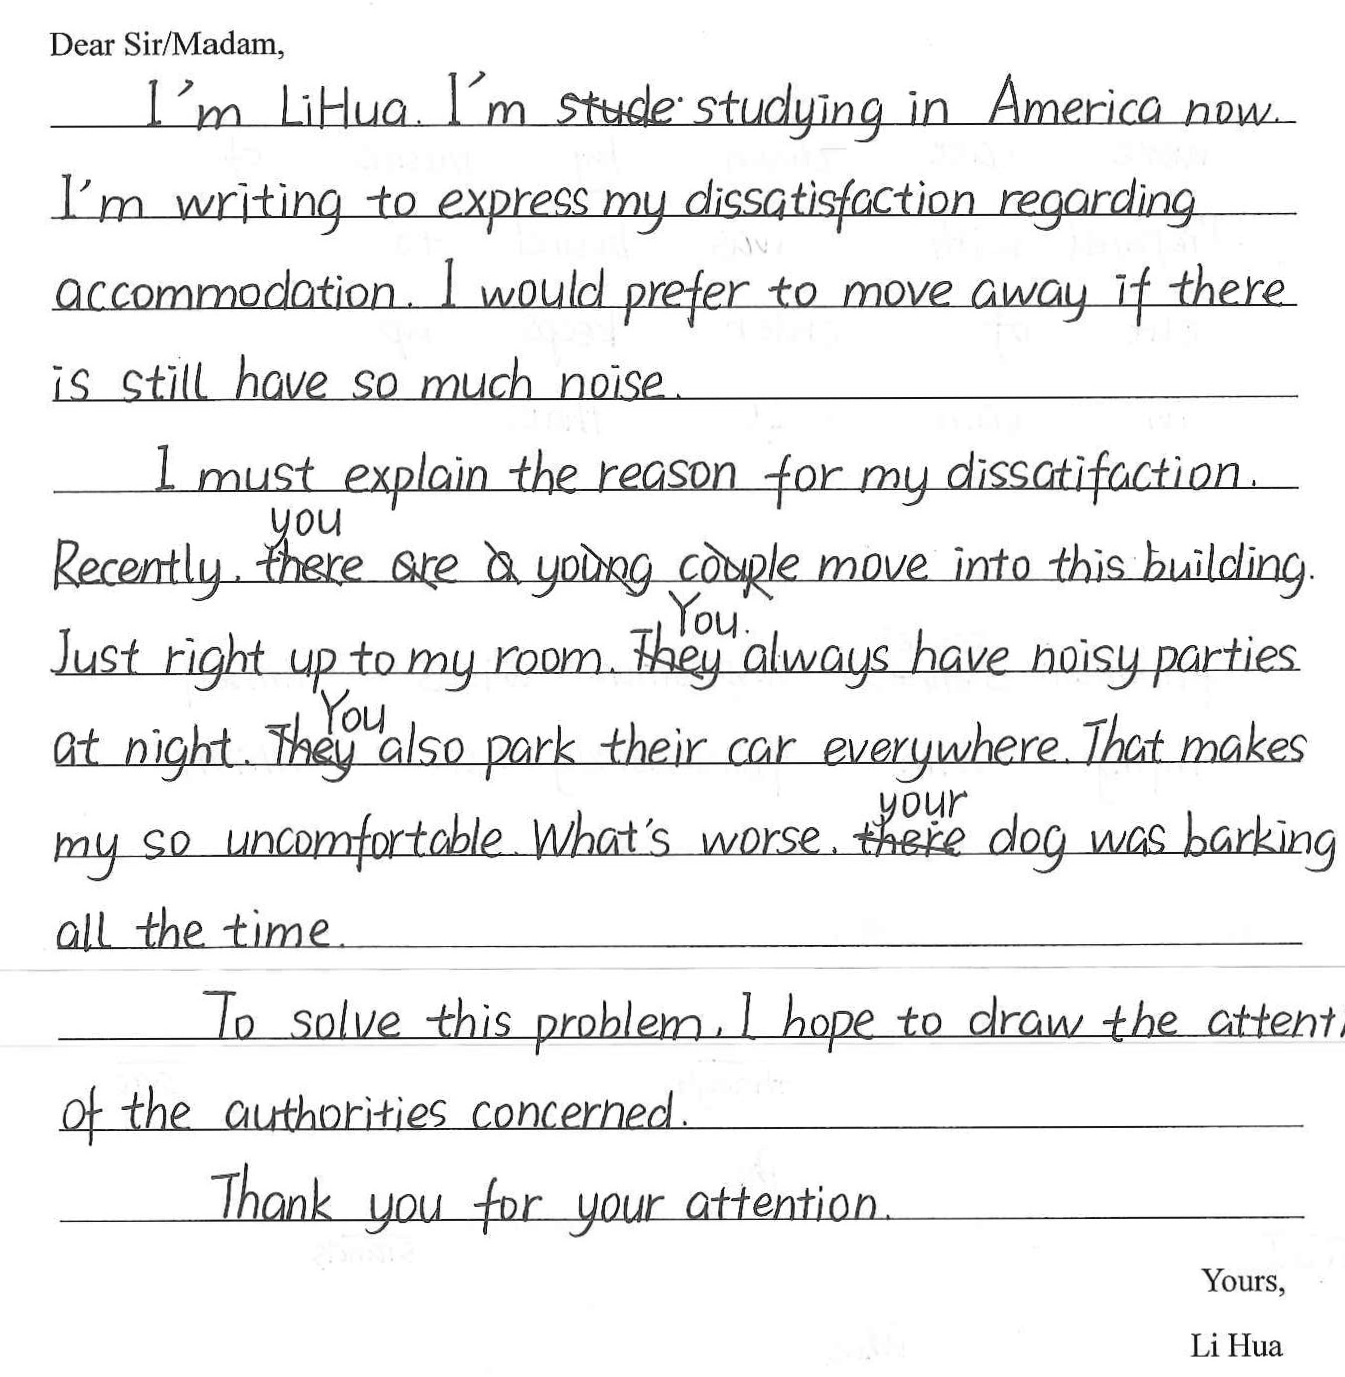 Dear Sir/Madam,
I'm LiHua. I'm stude studying in America now.
I'm writing to express my dissatisfaction regarding
accommodation. I would prefer to move away if there
is still have so much noise.
I must explain the reason for my dissatifaction.
you
Recently, there are a young couple move into this building.
You.
Just right up to my room. They always have noisy parties
You
at night. They also park their car everywhere. That makes
your
my so uncomfortable. What's worse, there dog was barking
all the time.
To solve this problem, I hope to draw the attenti
of the authorities concerned.
Thank you for your attention.
Yours,
Li Hua